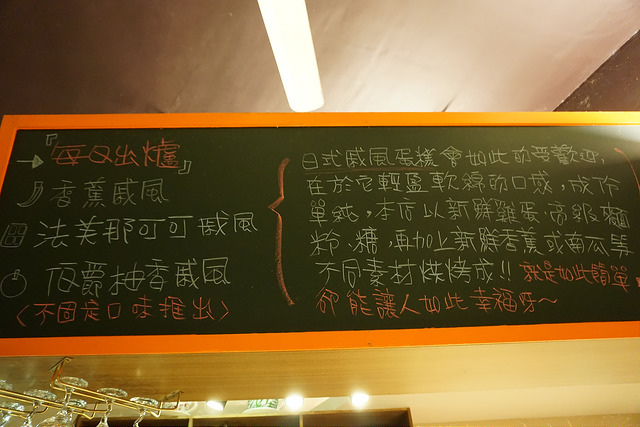 →『每日出爐』
香蕉戚風
法芙那可可戚風
伯爵柚香戚風
<不固定口味推出>
日式戚風蛋糕會如此的受歡迎,
在於它輕盈軟綿的口感,成份
單純,本店以新鮮雞蛋、高級麵
粉、糖,再加上新鮮香蕉或南瓜等
不同素材烘烤成!!就是如此簡單
卻能讓人如此幸福呀~